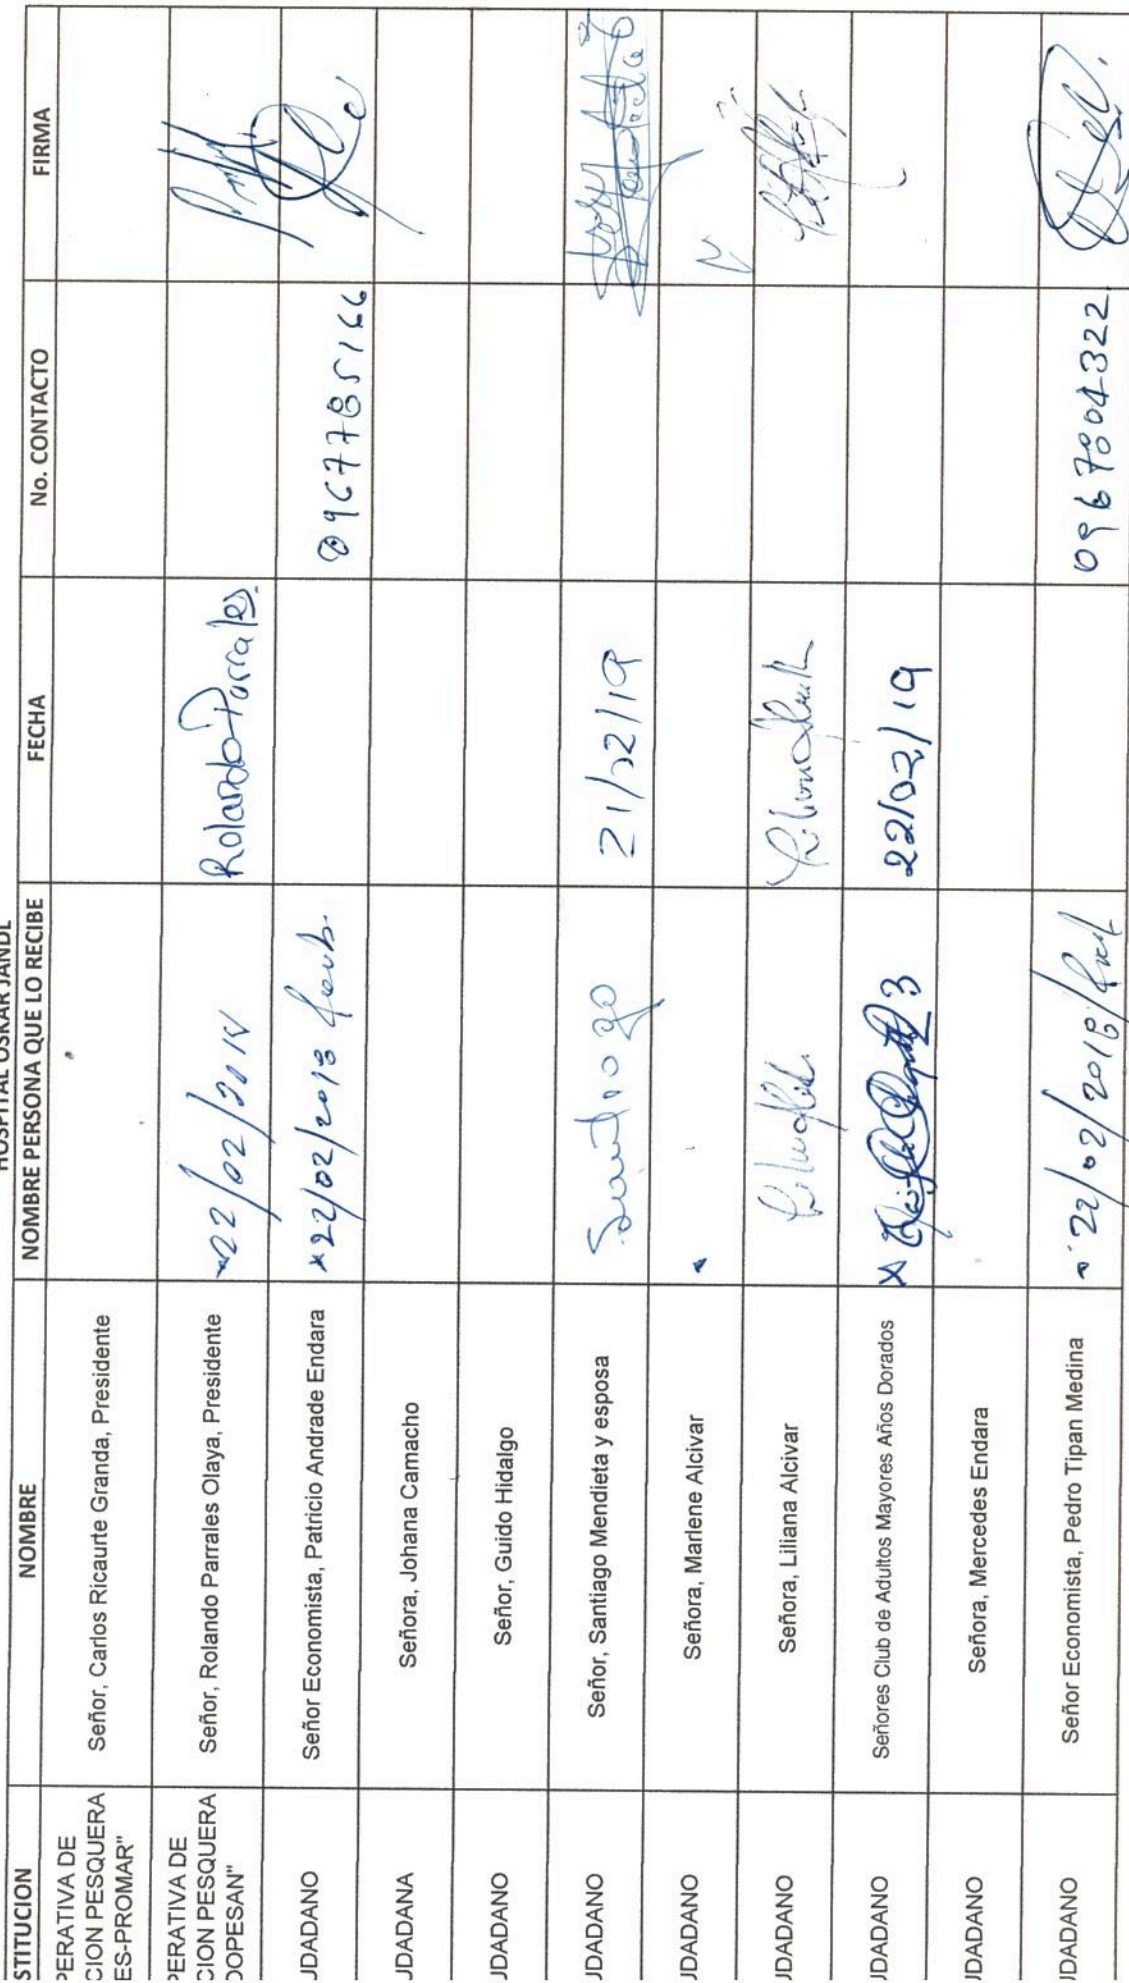 HOSPITAL OSKAR JANDL
STITUCION NOMBRE NOMBRE PERSONA QUE LO RECIBE FECHA No. CONTACTO FIRMA
PERATIVA DE
CION PESQUERA
ES-PROMAR"
Señor, Carlos Ricaurte Granda, Presidente
PERATIVA DE
CION PESQUERA
OOPESAN"
Señor, Rolando Parrales Olaya, Presidente 22/02/2018 Rolando Parrales
JDADANO Señor Economista, Patricio Andrade Endara 22/02/2018 0967785166
JDADANA Señora, Johana Camacho
JDADANO Señor, Guido Hidalgo
JDADANO Señor, Santiago Mendieta y esposa 21/02/19
JDADANO Señora, Marlene Alcivar
JDADANO Señora, Liliana Alcivar
JDADANO Señores Club de Adultos Mayores Años Dorados 22/02/19
JDADANO Señora, Mercedes Endara
JDADANO Señor Economista, Pedro Tipan Medina 22/02/2018 0967804322